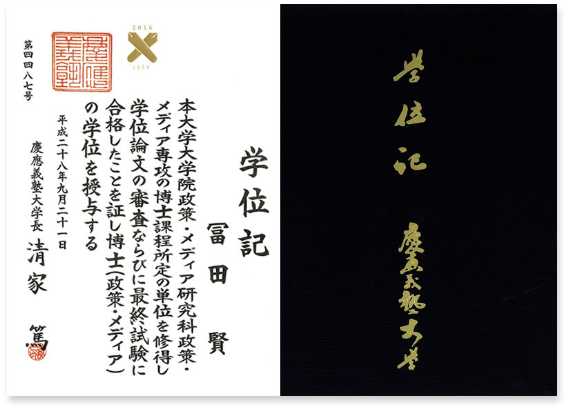 学位記
冨田 賢
本大学大学院政策・メディア研究科政策・
メディア専攻の博士課程所定の単位を修得し
学位論文の審査ならびに最終試験に
合格したことを証し博士(政策・メディア)
の学位を授与する
平成二十八年九月二十一日
慶應義塾大学長 清家 篤
第四四八七号
2016
1858
慶應義塾
学位記
慶應義塾大学